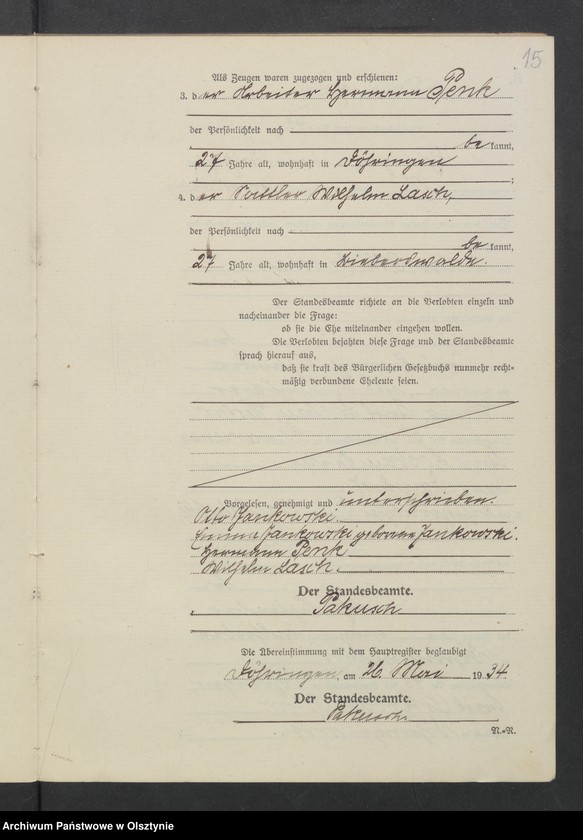 15
Als Zeugen waren zugezogen und erschienen:
3. der Arbeiter Hermann Penk
der Persönlichkeit nach
bekannt,
27 Jahre alt, wohnhaft in Döhringen
;
4. der Sattler Wilhelm Lasch,
der Persönlichkeit nach
bekannt,
27 Jahre alt, wohnhaft in Bieberswalde.
Der Standesbeamte richtete an die Verlobten einzeln und
nacheinander die Frage:
ob sie die Ehe miteinander eingehen wollen.
Die Verlobten bejahten diese Frage und der Standesbeamte
sprach hierauf aus,
daß sie kraft des Bürgerlichen Gesetzbuchs nunmehr recht-
mäßig verbundene Eheleute seien.
Vorgelesen, genehmigt und unterschrieben.
Otto Jankowski.
Emma Jankowski geborene Jankowski.
Hermann Penk
Wilhelm Lasch.
Der Standesbeamte.
Pakusch
Die Übereinstimmung mit dem Hauptregister beglaubigt
Döhringen, am 26. Mai 1934
Der Standesbeamte.
Pakusch.
N.-R.
Archiwum Państwowe w Olsztynie